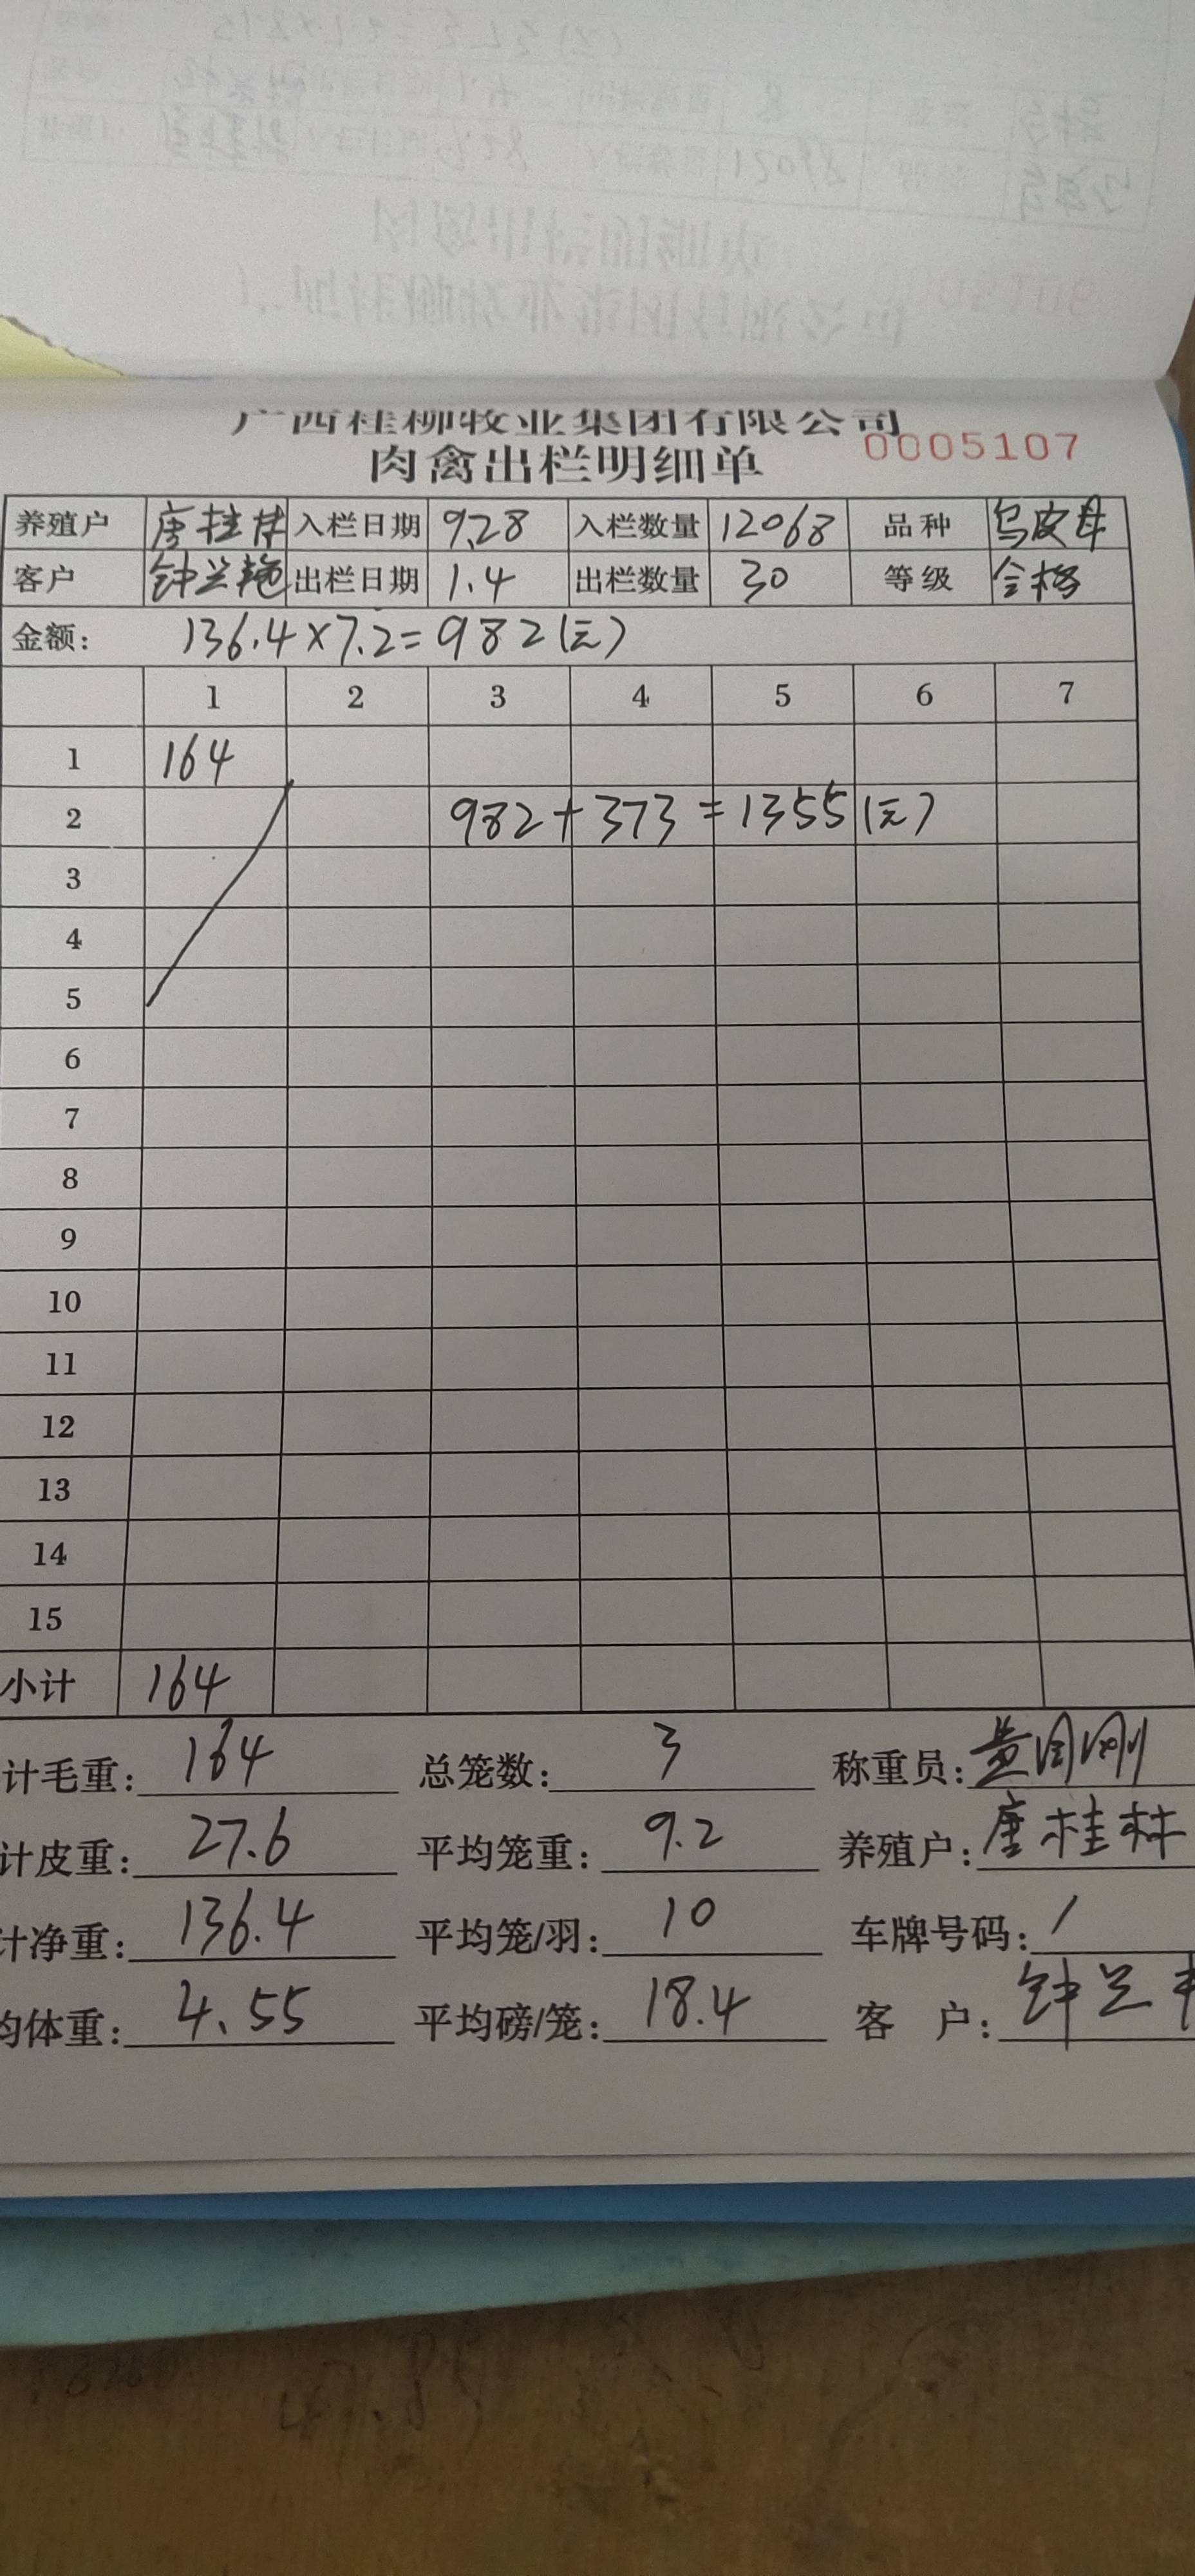 广西桂柳牧业集团有限公司
肉禽出栏明细单 0005107
养殖户 唐桂林 入栏日期 9.28 入栏数量 12068 品种 乌皮母
客户 钟兰艳 出栏日期 1.4 出栏数量 30 等级 合格
金额: 136.4×7.2=982(元)
1 2 3 4 5 6 7
1 164
2 982+373=1355(元)
3
4
5
6
7
8
9
10
11
12
13
14
15
小计 164
计毛重: 164 总笼数: 3 称重员:
计皮重: 27.6 平均笼重: 9.2 养殖户: 唐桂林
计净重: 136.4 平均笼/羽: 10 车牌号码: /
均体重: 4.55 平均磅/笼: 18.4 客 户: 钟兰